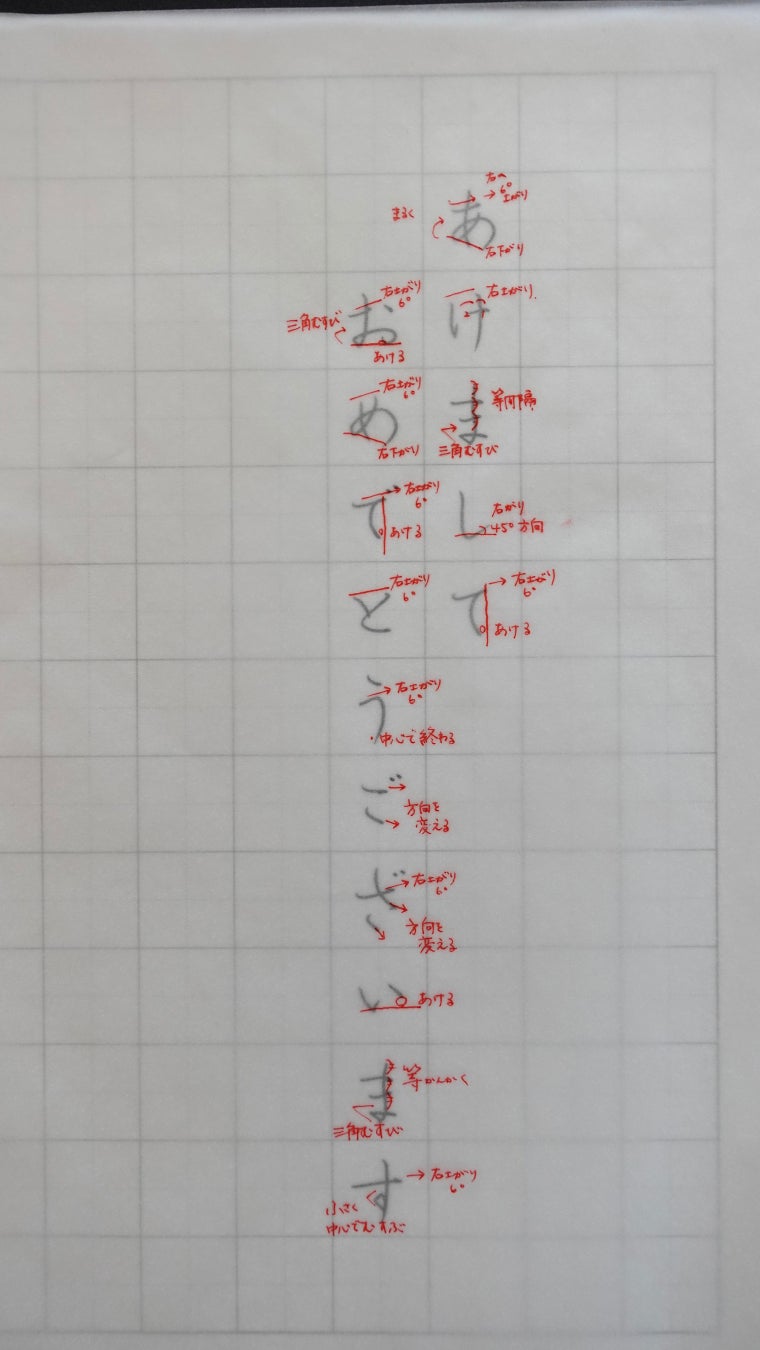 あけまして
おめでとうございます
右へ
→6°
上がり
まるく
右下がり
右上がり
右上がり
6°
三角むすび
あける
等間隔
三角むすび
右上がり
6°
右下がり
右がり
45°方向
右上がり
6°
あける
右上がり
6°
あける
右上がり
6°
右上がり
6°
中心で終わる
方向を
変える
右上がり
6°
方向を
変える
あける
等かんかく
三角むすび
右上がり
6°
小さく
中心でむすぶ